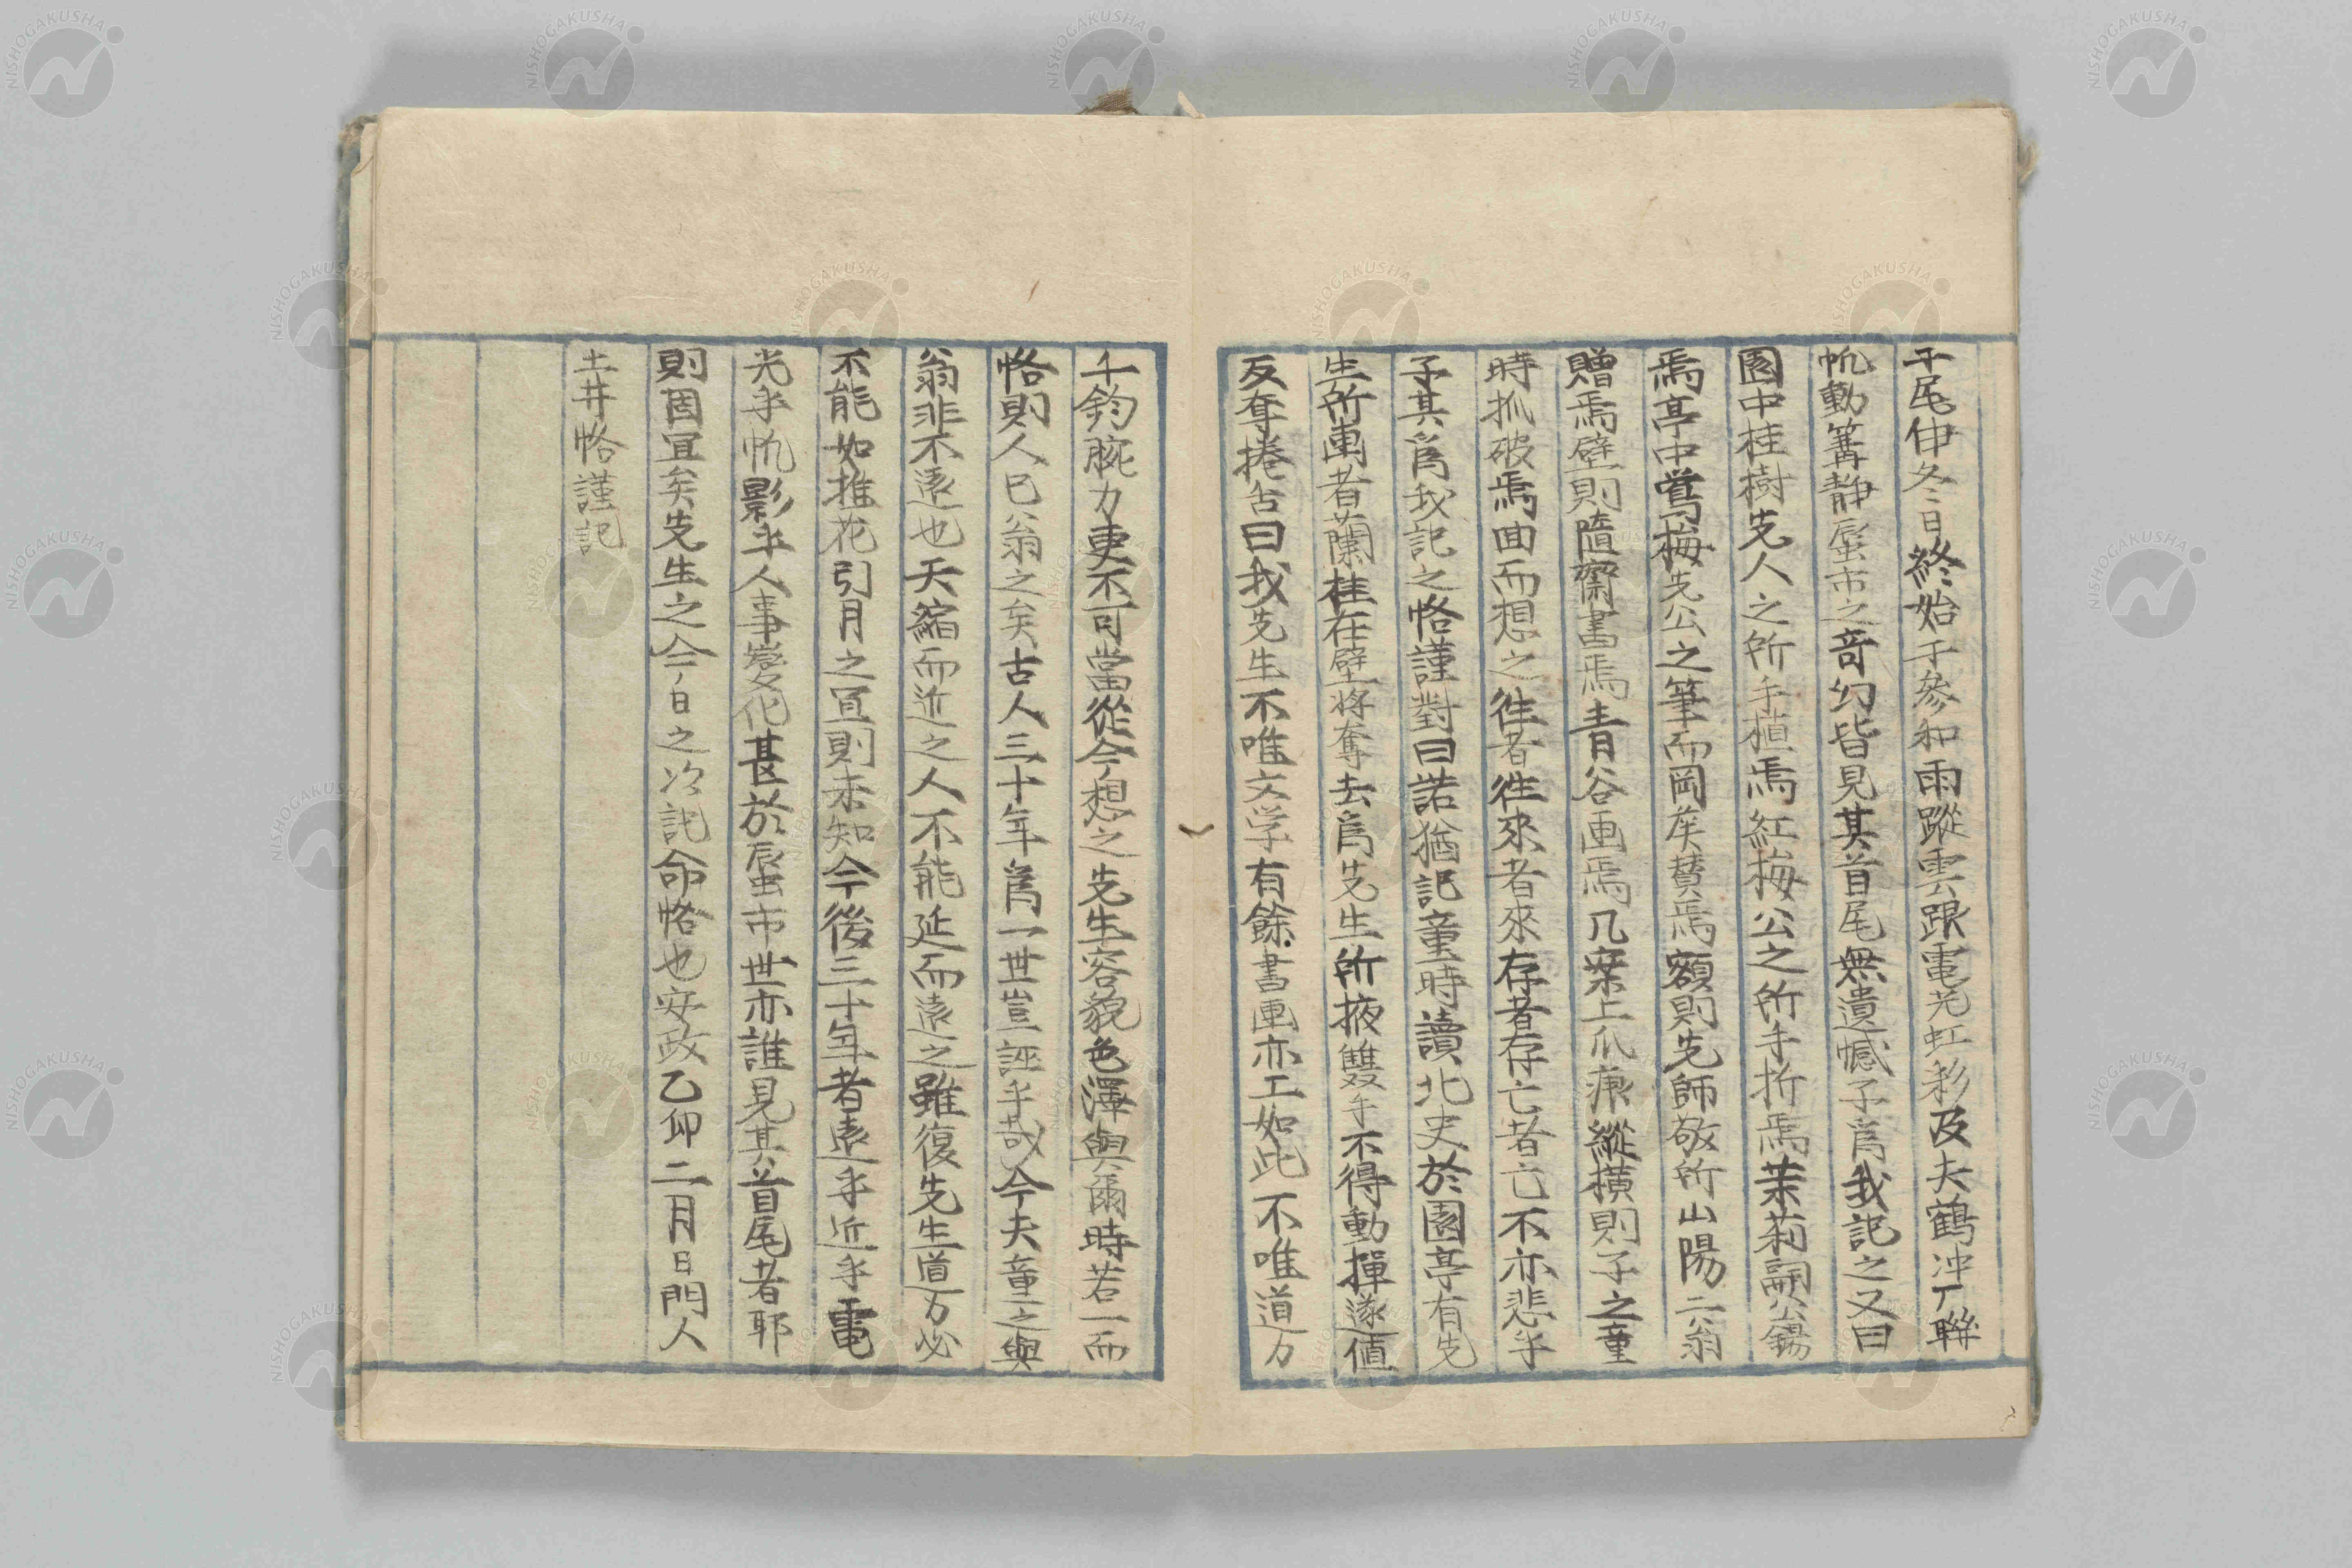 于尾伸冬日終始于參和雨蹤雲跟電光虹彩及夫鶴冲丁聯
帆動篝静蜃市之奇幻皆見其首尾無遺憾子爲我記之又曰
園中桂樹先人之所手植焉紅梅公之所手折焉茉莉嗣公錫
焉亭中鴬梅先公之筆而岡矦賛焉額則先師敬所山陽二翁
贈焉壁則隨齋書焉青谷画焉几案上爪痕縱横則子之童
時抓破焉回而想之徃者徃來者來存者存亡者亡不亦悲乎
子其爲我記之恪謹對曰諾猶記童時讀北史於園亭有先
生所画者蘭挂在壁將奪去爲先生所掖雙手不得動揮遂値
反奪捲舌曰我先生不唯文学有餘書画亦工如此不唯道力
千鈞腕力更不可當從今想之先生容貌色澤與爾時若一而
恪則人已翁之矣古人三十年爲一世豈誣乎哉今夫童之與
翁非不遠也天縮而近之人不能延而遠之雖復先生道力必
不能如推花引月之宜則未知今後三十年者遠乎近乎電
光乎帆影乎人事變化甚於蜃市世亦誰見其首尾者耶
則固宜矣先生之今日之汲記命恪也安政乙卯二月日門人
土井恪謹記
NISHOGAKUSHA